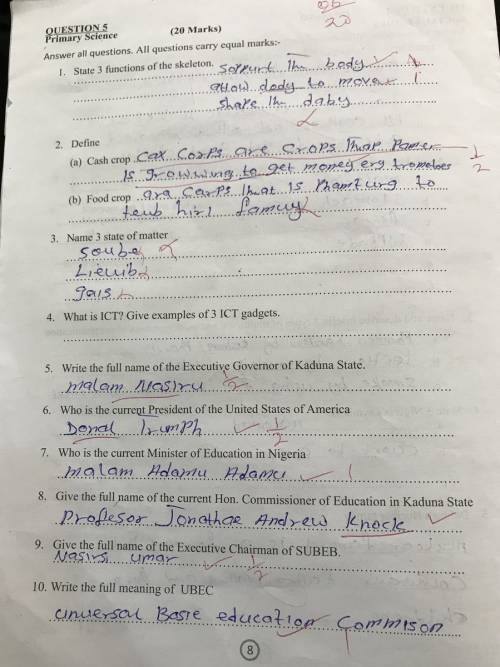 QUESTION 5 (20 Marks)
Primary Science
20
Answer all questions. All questions carry equal marks:-
1. State 3 functions of the skeleton. sopurt the body
allow dody to mover 1
shape the daby
2. Define
(a) Cash crop Cax Corps are Crops that Pamer
is growwing to get money eg tromotoes 1/2
(b) Food crop ara Carps that is Phamturg to
feub hirl famuy
3. Name 3 state of matter
Soube
Lieuib
gais
4. What is ICT? Give examples of 3 ICT gadgets.
5. Write the full name of the Executive Governor of Kaduna State.
malam Nasiru 1/2
6. Who is the current President of the United States of America
Donal Trumph 1/2
7. Who is the current Minister of Education in Nigeria
malam Adamu Adamu 1
8. Give the full name of the current Hon. Commissioner of Education in Kaduna State
Proffesor Jonathae Andrew Knock
9. Give the full name of the Executive Chairman of SUBEB.
Nasirs umar 1/2
10. Write the full meaning of UBEC
unuersal Basie education Commison
1
8